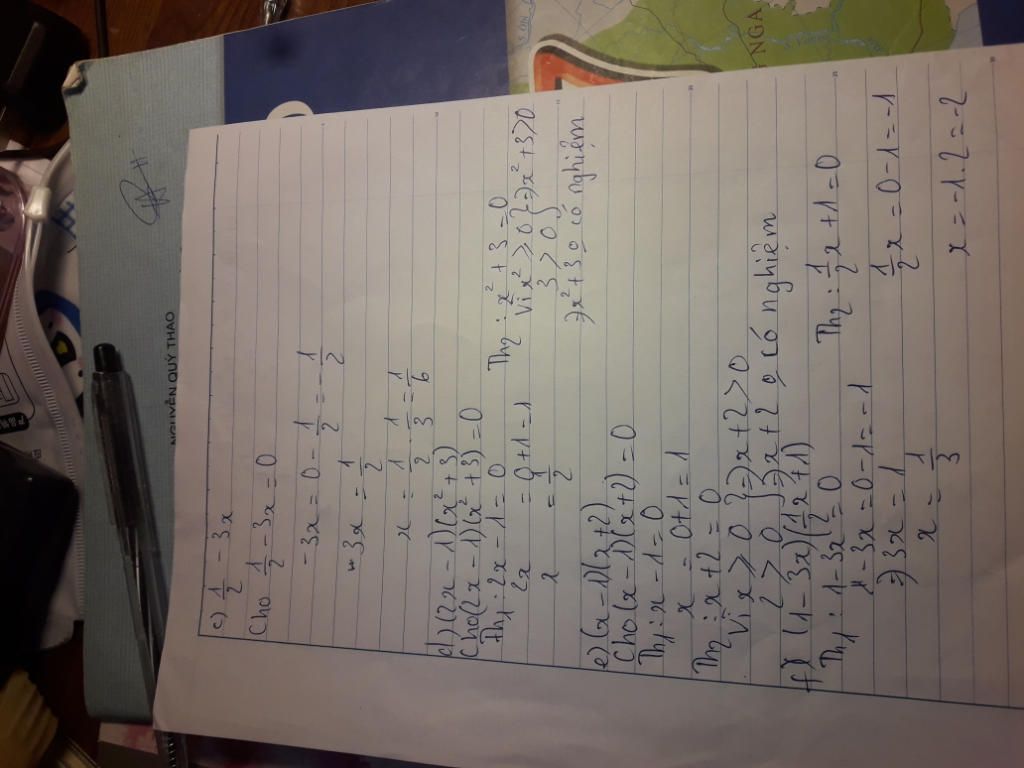 NGA
NGUYỄN QUÝ THAO
c) 1/2 - 3x
Cho 1/2 - 3x = 0
- 3x = 0 - 1/2 = - 1/2
3x = 1/2
x = 1/2 . 1/3 = 1/6
d) (2x - 1)(x² + 3)
Cho (2x - 1)(x² + 3) = 0
Th1 : 2x - 1 = 0
2x = 0 + 1 = 1
x = 1/2
Th2 : x² + 3 = 0
Vì x² ≥ 0 } => x² + 3 > 0
3 > 0
=> x² + 3 0 có nghiệm
e) (x - 1)(x + 2)
Cho (x - 1)(x + 2) = 0
Th1 : x - 1 = 0
x = 0 + 1 = 1
Th2 : x + 2 = 0
Vì x ≥ 0 } => x + 2 > 0
2 > 0 } => x + 2 0 có nghiệm
f) (1 - 3x)(1/2 x + 1)
Th1 : 1 - 3x = 0
- 3x = 0 - 1 = - 1
=> 3x = 1
x = 1/3
Th2 : 1/2 x + 1 = 0
1/2 x = 0 - 1 = - 1
x = - 1 . 2 = - 2